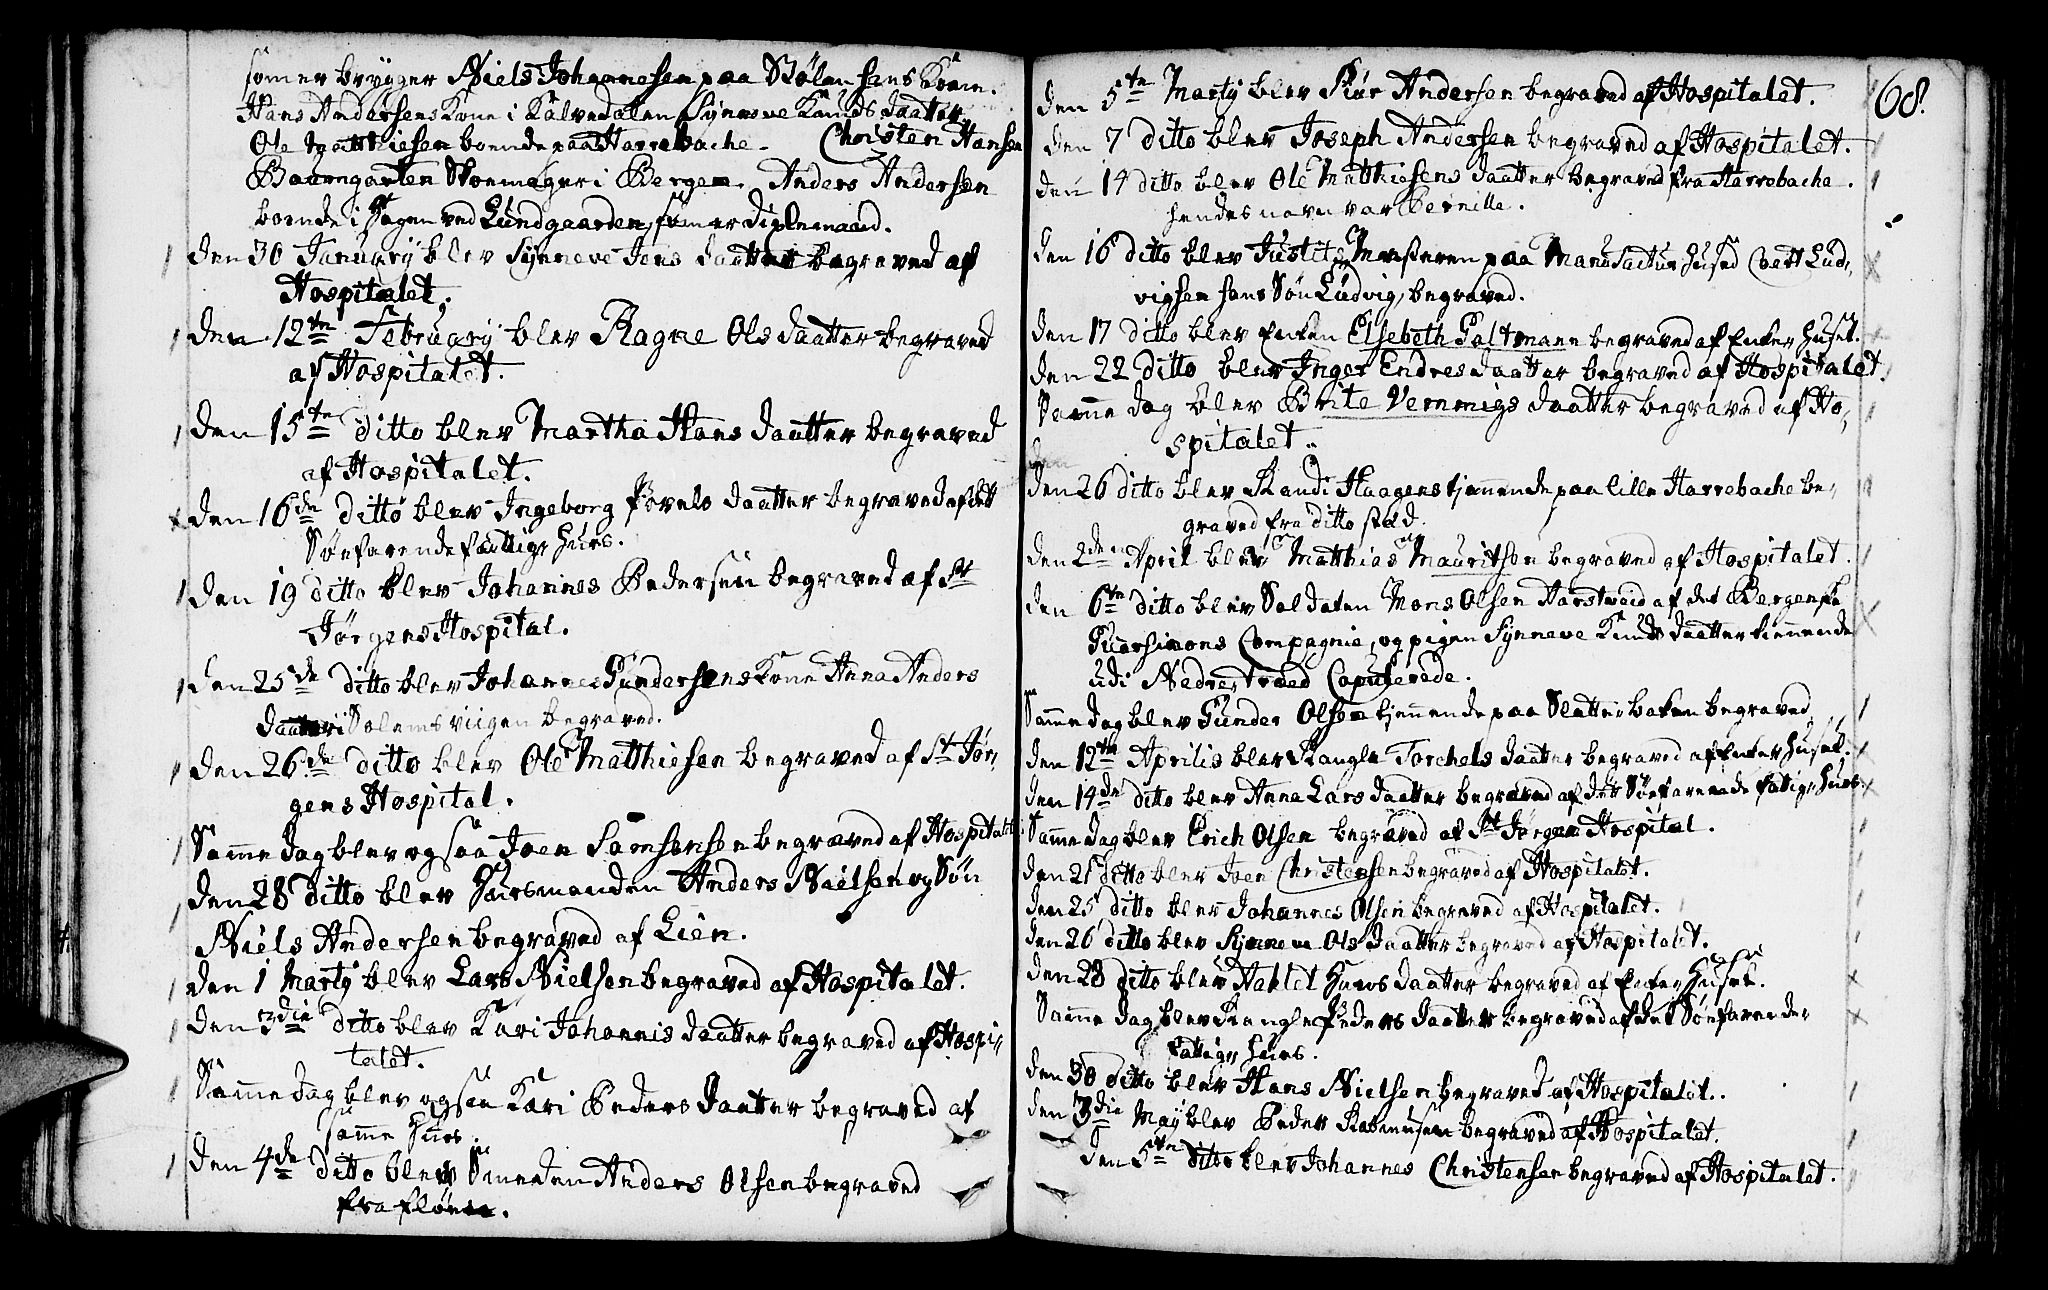 som er brygger Niels Johannesen paa Stølen hans Kone.
Hans Andersens Kone i Kalvedalen Synneve Knuds daatter
Ole Matthiesen boende paa Harrebache. Christen Hansen
Baumgarten Skoemager i Bergen. Anders Andersen
boende i Hagen ved Lundgaarden, som er
Den 30 January blev Synneve Jens daatter begraved af
Hospitalet.
Den 12te February blev Ragne Ols daatter begraved
af Hospitalet.
Den 15te ditto blev Martha Hans daatter begraved
af Hospitalet.
Den 16de ditto blev Ingeborg Povels daatter begraved af det
Søefarende fattiges Huus.
Den 19 ditto blev Johannes Pedersen begraved af St
Jørgens Hospital.
Den 25de ditto blev Johannes Gundersens Kone Anna Anders
daatter i Solems viigen begraved.
Den 26de ditto blev Ole Matthiesen begraved af St Jør-
gens Hospital.
Samme dag blev og saa Joen Samsonsen begraved af Hospitalet
Den 28 ditto blev Huusmanden Anders Nielsen og Søn
Niels Andersen begraved af Lien.
Den 1 Marty blev Lars Nielsen begraved af Hospitalet.
Den 3die ditto blev Kari Johannis daatter begraved af Hospi-
talet.
Samme dag blev og saa Kari Peders daatter begraved af
samme Huus.
Den 4de ditto blev Smeden Anders Olsen begraved
fra Fløen.
68.
Den 5te Marty blev Siur Andersen begraved af Hospitalet.
Den 7 ditto blev Joseph Andersen begraved af Hospitalet.
Den 14 ditto blev Ole Matthiesens daatter begraved fra Harrebache.
hendes navn var Pernille.
Den 16 ditto blev Mesteren paa Manufactur Huset Coett Lud-
vigsen hans Søn Ludvig, begraved.
Den 17 ditto blev Enken Elsebeth Paltmann begraved af Enke Huset.
Den 22 ditto blev Inger Endres daatter begraved af Hospitalet.
Samme dag blev Brite Vemmigs daatter begraved af Ho-
spitalet.
Den 26 ditto blev Randi Haagens tjenende paa lille Harrebache be-
graved fra ditto stæd.
Den 2den April blev Matthias Mauritson begraved af Hospitalet.
Den 6te ditto blev Soldaten Mons Olsen Aarstvaid af det Bergenske
Guarnisons Compagnie, og pigen Synneve Knuds daatter tienende
udi Nedrestræed Copulerede.
Samme dag blev Gunder Olsen tjenende paa Sletterbaken begraved
Den 12te Aprilis blev Rangle Torchels daatter begraved af Enke Huset.
Den 14de ditto blev Anna Lars daatter begraved af det Søefarende fattiges Huus.
Samme dag blev Erich Olsen begraved af St Jørgens Hospital.
Den 21 ditto blev Joen Christensen begraved af Hospitalet.
Den 25 ditto blev Johannes Olsen begraved af Hospitalet.
Den 26 ditto blev Synneve Ols daatter begraved af Hospitalet.
Den 28 ditto blev daatter begraved af Enke Huset.
Samme dag blev Rangle Peders daatter begraved af det Søefarende
fattiges Huus.
Den 30 ditto blev Hans Nielsen begraved af Hospitalet.
Den 3die May blev Peder Rasmusen begraved af Hospitalet.
Den 5te ditto blev Johannes Christensen begraved af Hospitalet.